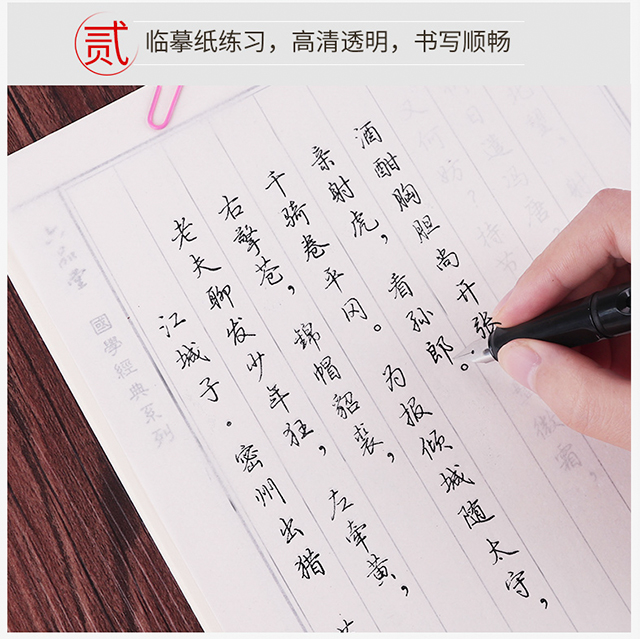 贰
临摹纸练习，高清透明，书写顺畅
六品堂 國學經典系列
江城子。密州出猎
老夫聊发少年狂，左牵黄，
右擎苍，锦帽貂裘，
千骑卷平冈。为报倾城随太守，
亲射虎，看孙郎。
酒酣胸胆尚开张
微霜，
又何妨？持节
日遣冯唐